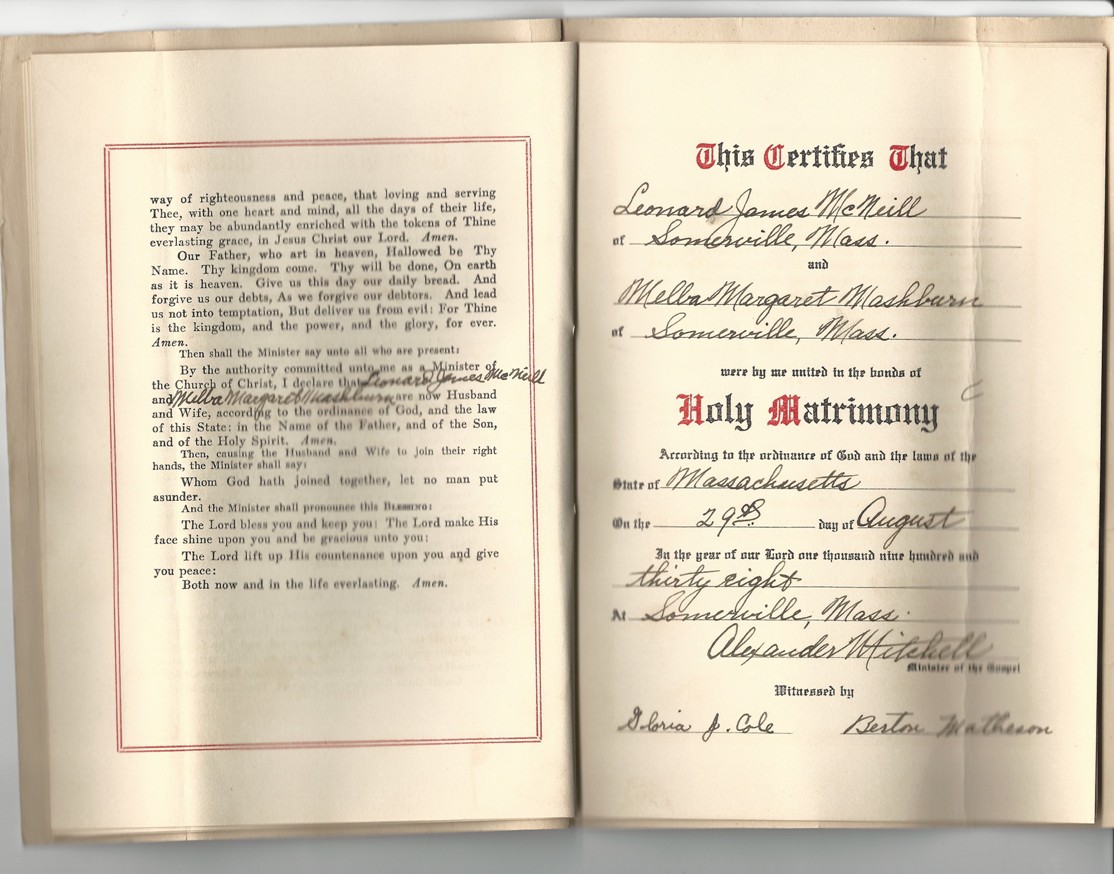 way of righteousness and peace, that loving and serving
Thee, with one heart and mind, all the days of their life,
they may be abundantly enriched with the tokens of Thine
everlasting grace, in Jesus Christ our Lord. Amen.
Our Father, who art in heaven, Hallowed be Thy
Name. Thy kingdom come. Thy will be done, On earth
as it is heaven. Give us this day our daily bread. And
forgive us our debts, As we forgive our debtors. And lead
us not into temptation, But deliver us from evil: For Thine
is the kingdom, and the power, and the glory, for ever.
Amen.
Then shall the Minister say unto all who are present:
By the authority committed unto me as a Minister of
the Church of Christ, I declare that Leonard James McNeill
and Melba Margaret Mashburn are now Husband
and Wife, according to the ordinance of God, and the law
of this State: in the Name of the Father, and of the Son,
and of the Holy Spirit. Amen.
Then, causing the Husband and Wife to join their right
hands, the Minister shall say:
Whom God hath joined together, let no man put
asunder.
And the Minister shall pronounce this BLESSING:
The Lord bless you and keep you: The Lord make His
face shine upon you and be gracious unto you:
The Lord lift up His countenance upon you and give
you peace:
Both now and in the life everlasting. Amen.
This Certifies That
Leonard James McNeill
of Somerville, Mass.
and
Melba Margaret Mashburn
of Somerville, Mass.
were by me united in the bonds of
Holy Matrimony
According to the ordinance of God and the laws of the
State of Massachusetts
On the 29th day of August
In the year of our Lord one thousand nine hundred and
thirty eight
At Somerville, Mass.
Alexander Mitchell
Minister of the Gospel
Witnessed by
Gloria J. Cole Berton Matheson